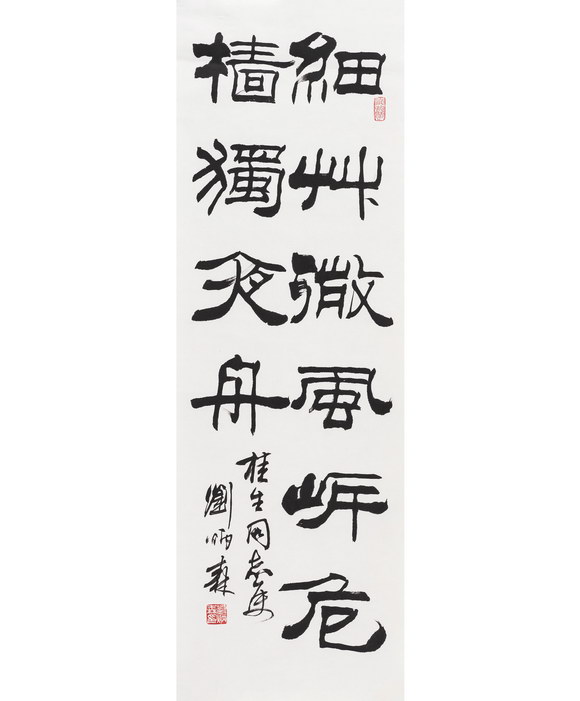 細艸微風岸危
檣獨夜舟
桂生同志正
劉炳森